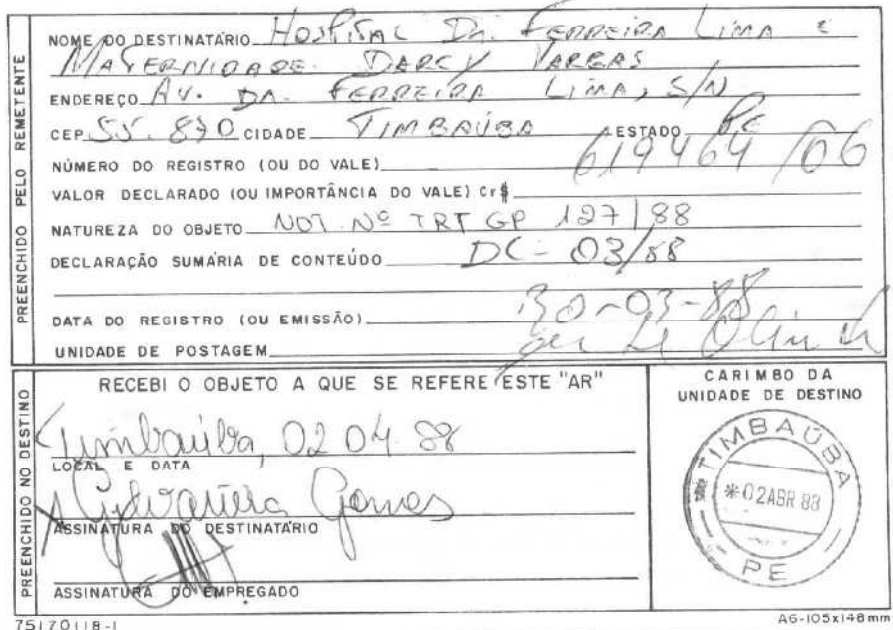 PREENCHIDO PELO REMETENTE
NOME DO DESTINATÁRIO Hospital Dr. Ferreira Lima e
Maternidade Darcy Vargas
ENDEREÇO Av. Dr. Ferreira Lima, S/N
CEP 55.870 CIDADE Timbaúba ESTADO Pe
NÚMERO DO REGISTRO (OU DO VALE) 619464/06
VALOR DECLARADO (OU IMPORTÂNCIA DO VALE) Cr$
NATUREZA DO OBJETO NOT. Nº TRT GP 127/88
DECLARAÇÃO SUMÁRIA DE CONTEÚDO DC-03/88
DATA DO REGISTRO (OU EMISSÃO) 30-03-88
UNIDADE DE POSTAGEM
PREENCHIDO NO DESTINO
RECEBI O OBJETO A QUE SE REFERE ESTE "AR"
Timbaúba, 02 04 88
LOCAL E DATA
Gomes
ASSINATURA DO DESTINATÁRIO
ASSINATURA DO EMPREGADO
CARIMBO DA
UNIDADE DE DESTINO
TIMBAÚBA
*02ABR 88
PE
75170118-1
A6-105x148mm